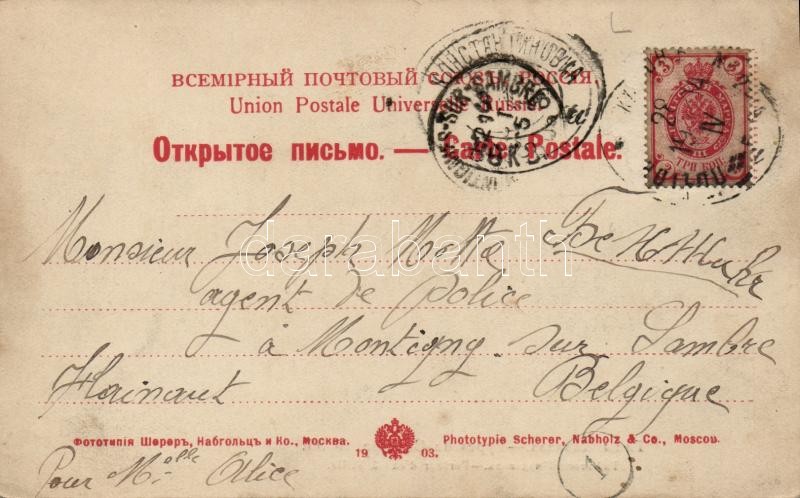 ВСЕМІРНЫЙ ПОЧТОВЫЙ СОЮЗЪ. РОССІЯ.
Union Postale Universelle Russie
Открытое письмо. — Carte Postale.
КОНСТАНТИНОВКА
MONTIGNY-SUR-SAMBRE
3 3
ТРИ КОП.
Monsieur Joseph Motte
agent de police
à Montigny sur Sambre
Hainaut Belgique
darabanth
Фототипія Шереръ, Набгольцъ и Ко., Москва. 1903. Phototypie Scherer, Nabholz & Co., Moscou.
Pour Melle Alice
1